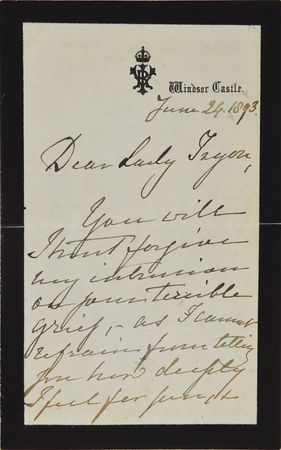 Windsor Castle.
June 24. 1893.
Dear Lady Tryon,
You will
I trust forgive
my intrusion
on your terrible
grief, – as I cannot
refrain from telling
you how deeply
I feel for you &